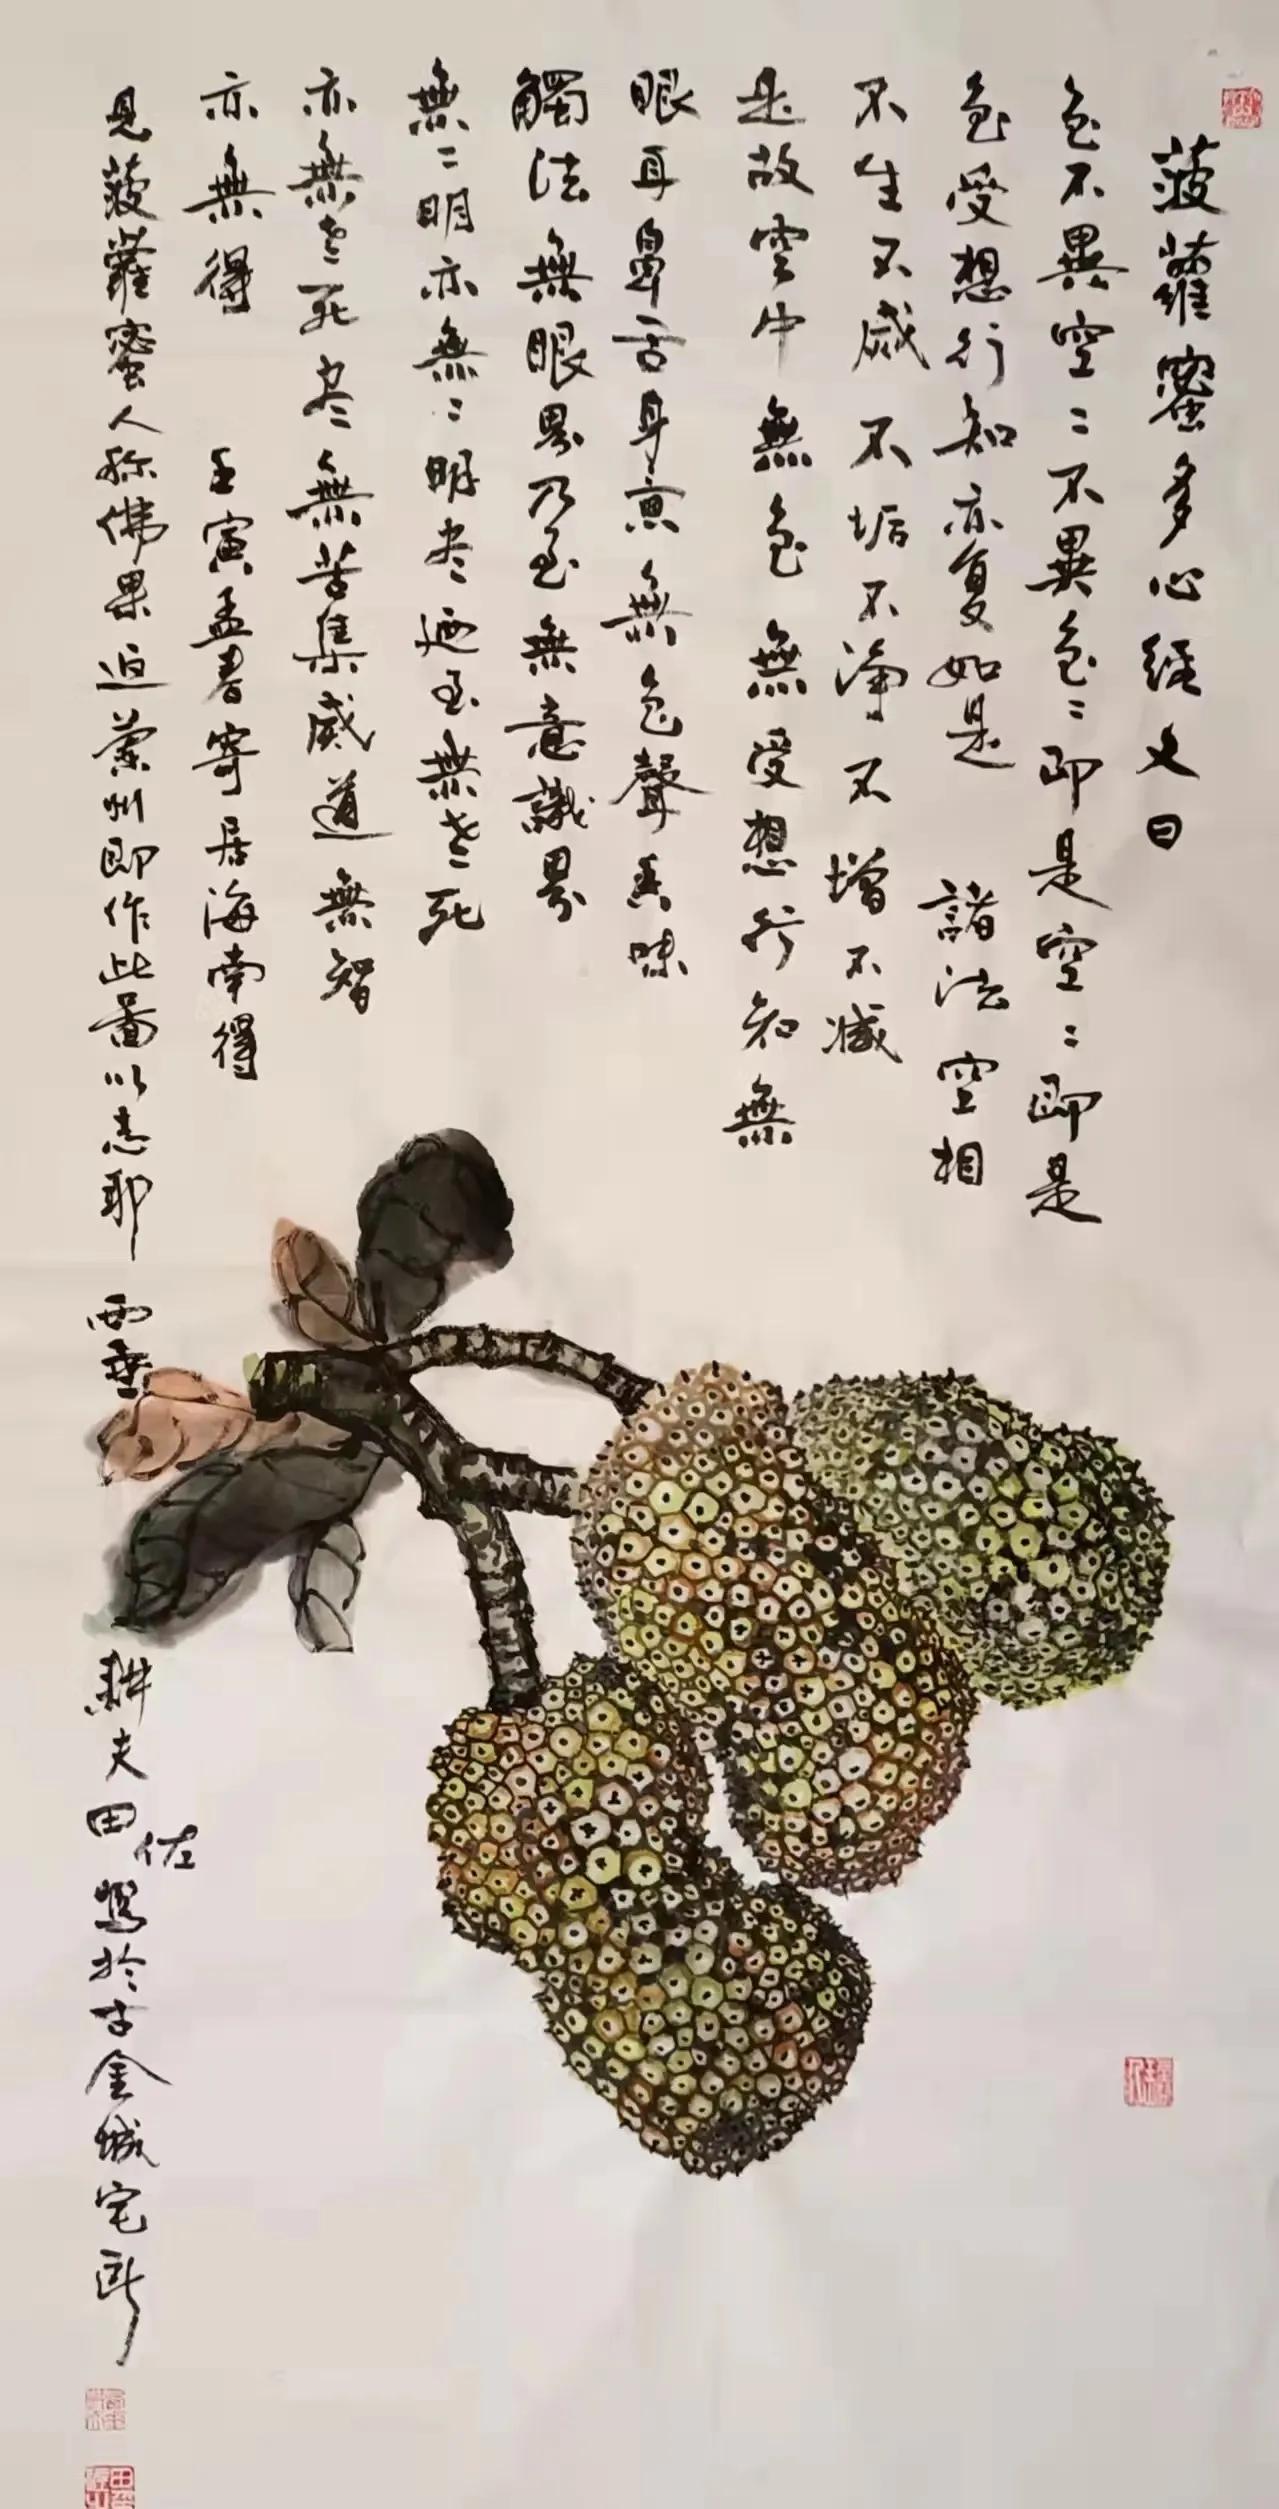 菠蘿蜜多心経文曰
色不異空〻不異色〻即是空〻即是
色受想行知亦复如是 諸法空相
不生不滅不垢不净不增不减
是故空中無色無受想行知無
眼耳鼻舌身意無色聲香味
觸法無眼界乃至無意識界
無〻明亦無〻明尽迺至無老死
亦無老死尽無苦集滅道無智
亦無得
壬寅孟春寄居海南得
見菠蘿蜜人称佛果迫蘭州即作此圖以志耶 西垂
耕夫田佐寫於古金城宅所